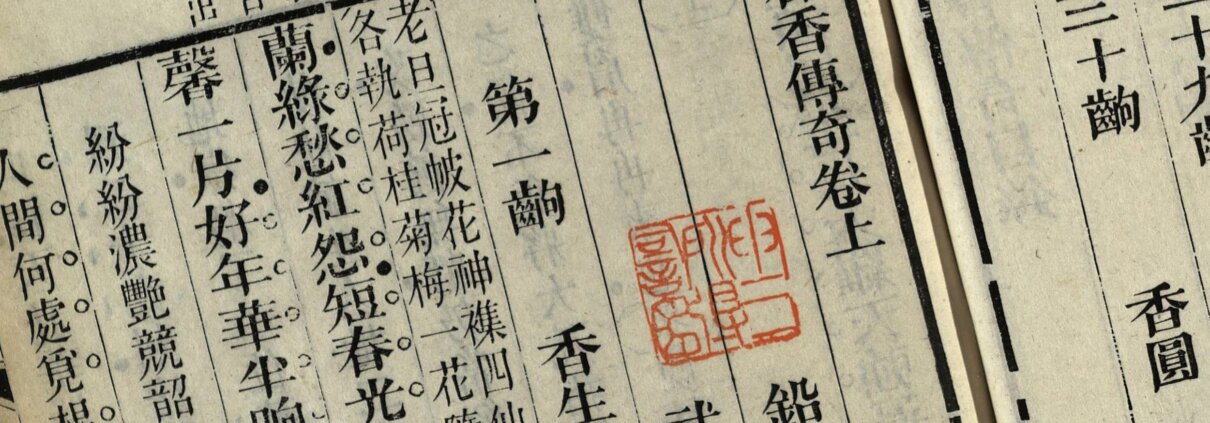 二十九齣
三十齣
香圓
香傳奇卷上
鉛
武
第一齣
香生
老旦冠帔花神襍四仙
各執荷桂菊梅一花隨
蘭綠愁紅怨短春光
馨一片好年華半晌
紛紛濃艷競韶
人間何處覓
出